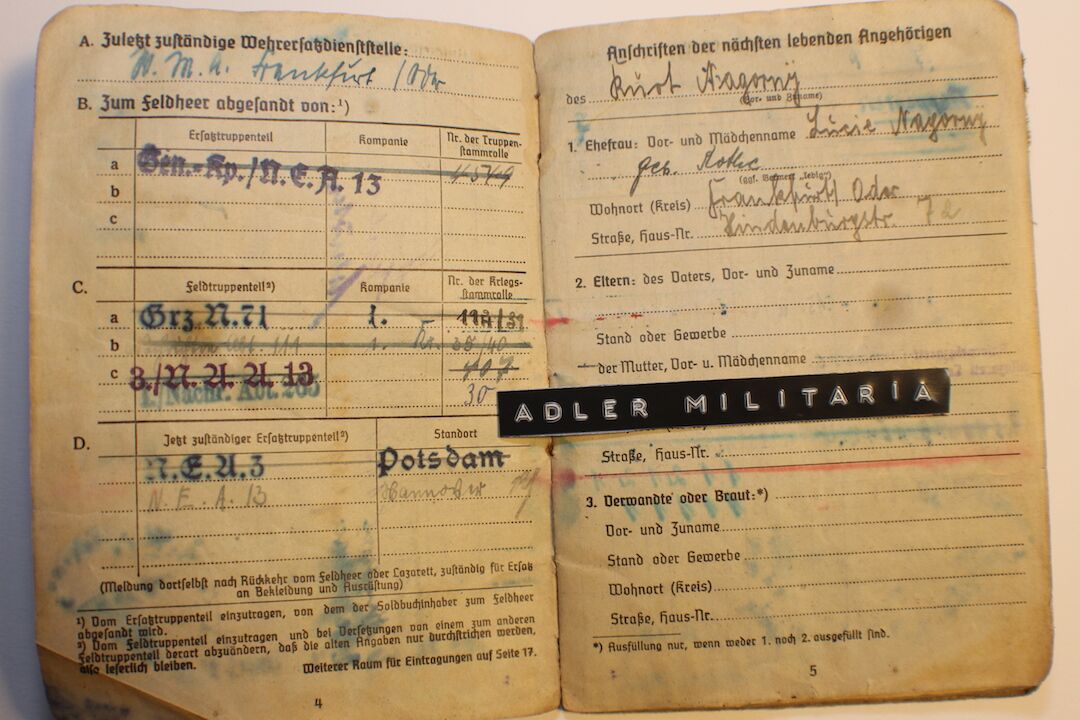 A. Zuletzt zuständige Wehrersatzdienststelle:
W. M. A. Frankfurt / Oder
B. Zum Feldheer abgesandt von:¹)
Ersatztruppenteil Kompanie Nr. der Truppen-
stammrolle
a Gen.-Kp./N.E.A. 13 4549
b
c
C. Feldtruppenteil²) Kompanie Nr. der Kriegs-
stammrolle
a Grz N.71 1.
b 111 1.
c 3./N.A.A.13
1./Nachr. Abt. 30
D. Jetzt zuständiger Ersatztruppenteil²) Standort
N.E.A.3 Potsdam
N.E.A. 13 Hannover
(Meldung dortselbst nach Rückkehr vom Feldheer oder Lazarett, zuständig für Ersatz
an Bekleidung und Ausrüstung)
¹) Vom Ersatztruppenteil einzutragen, von dem der Soldbuchinhaber zum Feldheer
abgesandt wird.
²) Vom Feldtruppenteil einzutragen und bei Versetzungen von einem zum anderen
Feldtruppenteil derart abzuändern, daß die alten Angaben nur durchstrichen werden,
also leserlich bleiben.
Weiterer Raum für Eintragungen auf Seite 17.
4
Anschriften der nächsten lebenden Angehörigen
des Kurt Nagorny
(Vor- und Zuname)
1. Ehefrau: Vor- und Mädchenname Lucie Nagorny
geb.
(ggf. Vermerk „ledig")
Wohnort (Kreis) Frankfurt/Oder
Straße, Haus-Nr. Hindenburgstr. 7a
2. Eltern: des Vaters, Vor- und Zuname
Stand oder Gewerbe
der Mutter, Vor- u. Mädchenname
ADLER MILITARIA
Straße, Haus-Nr.
3. Verwandte oder Braut:*)
Vor- und Zuname
Stand oder Gewerbe
Wohnort (Kreis)
Straße, Haus-Nr.
*) Ausfüllung nur, wenn weder 1. noch 2. ausgefüllt sind.
5